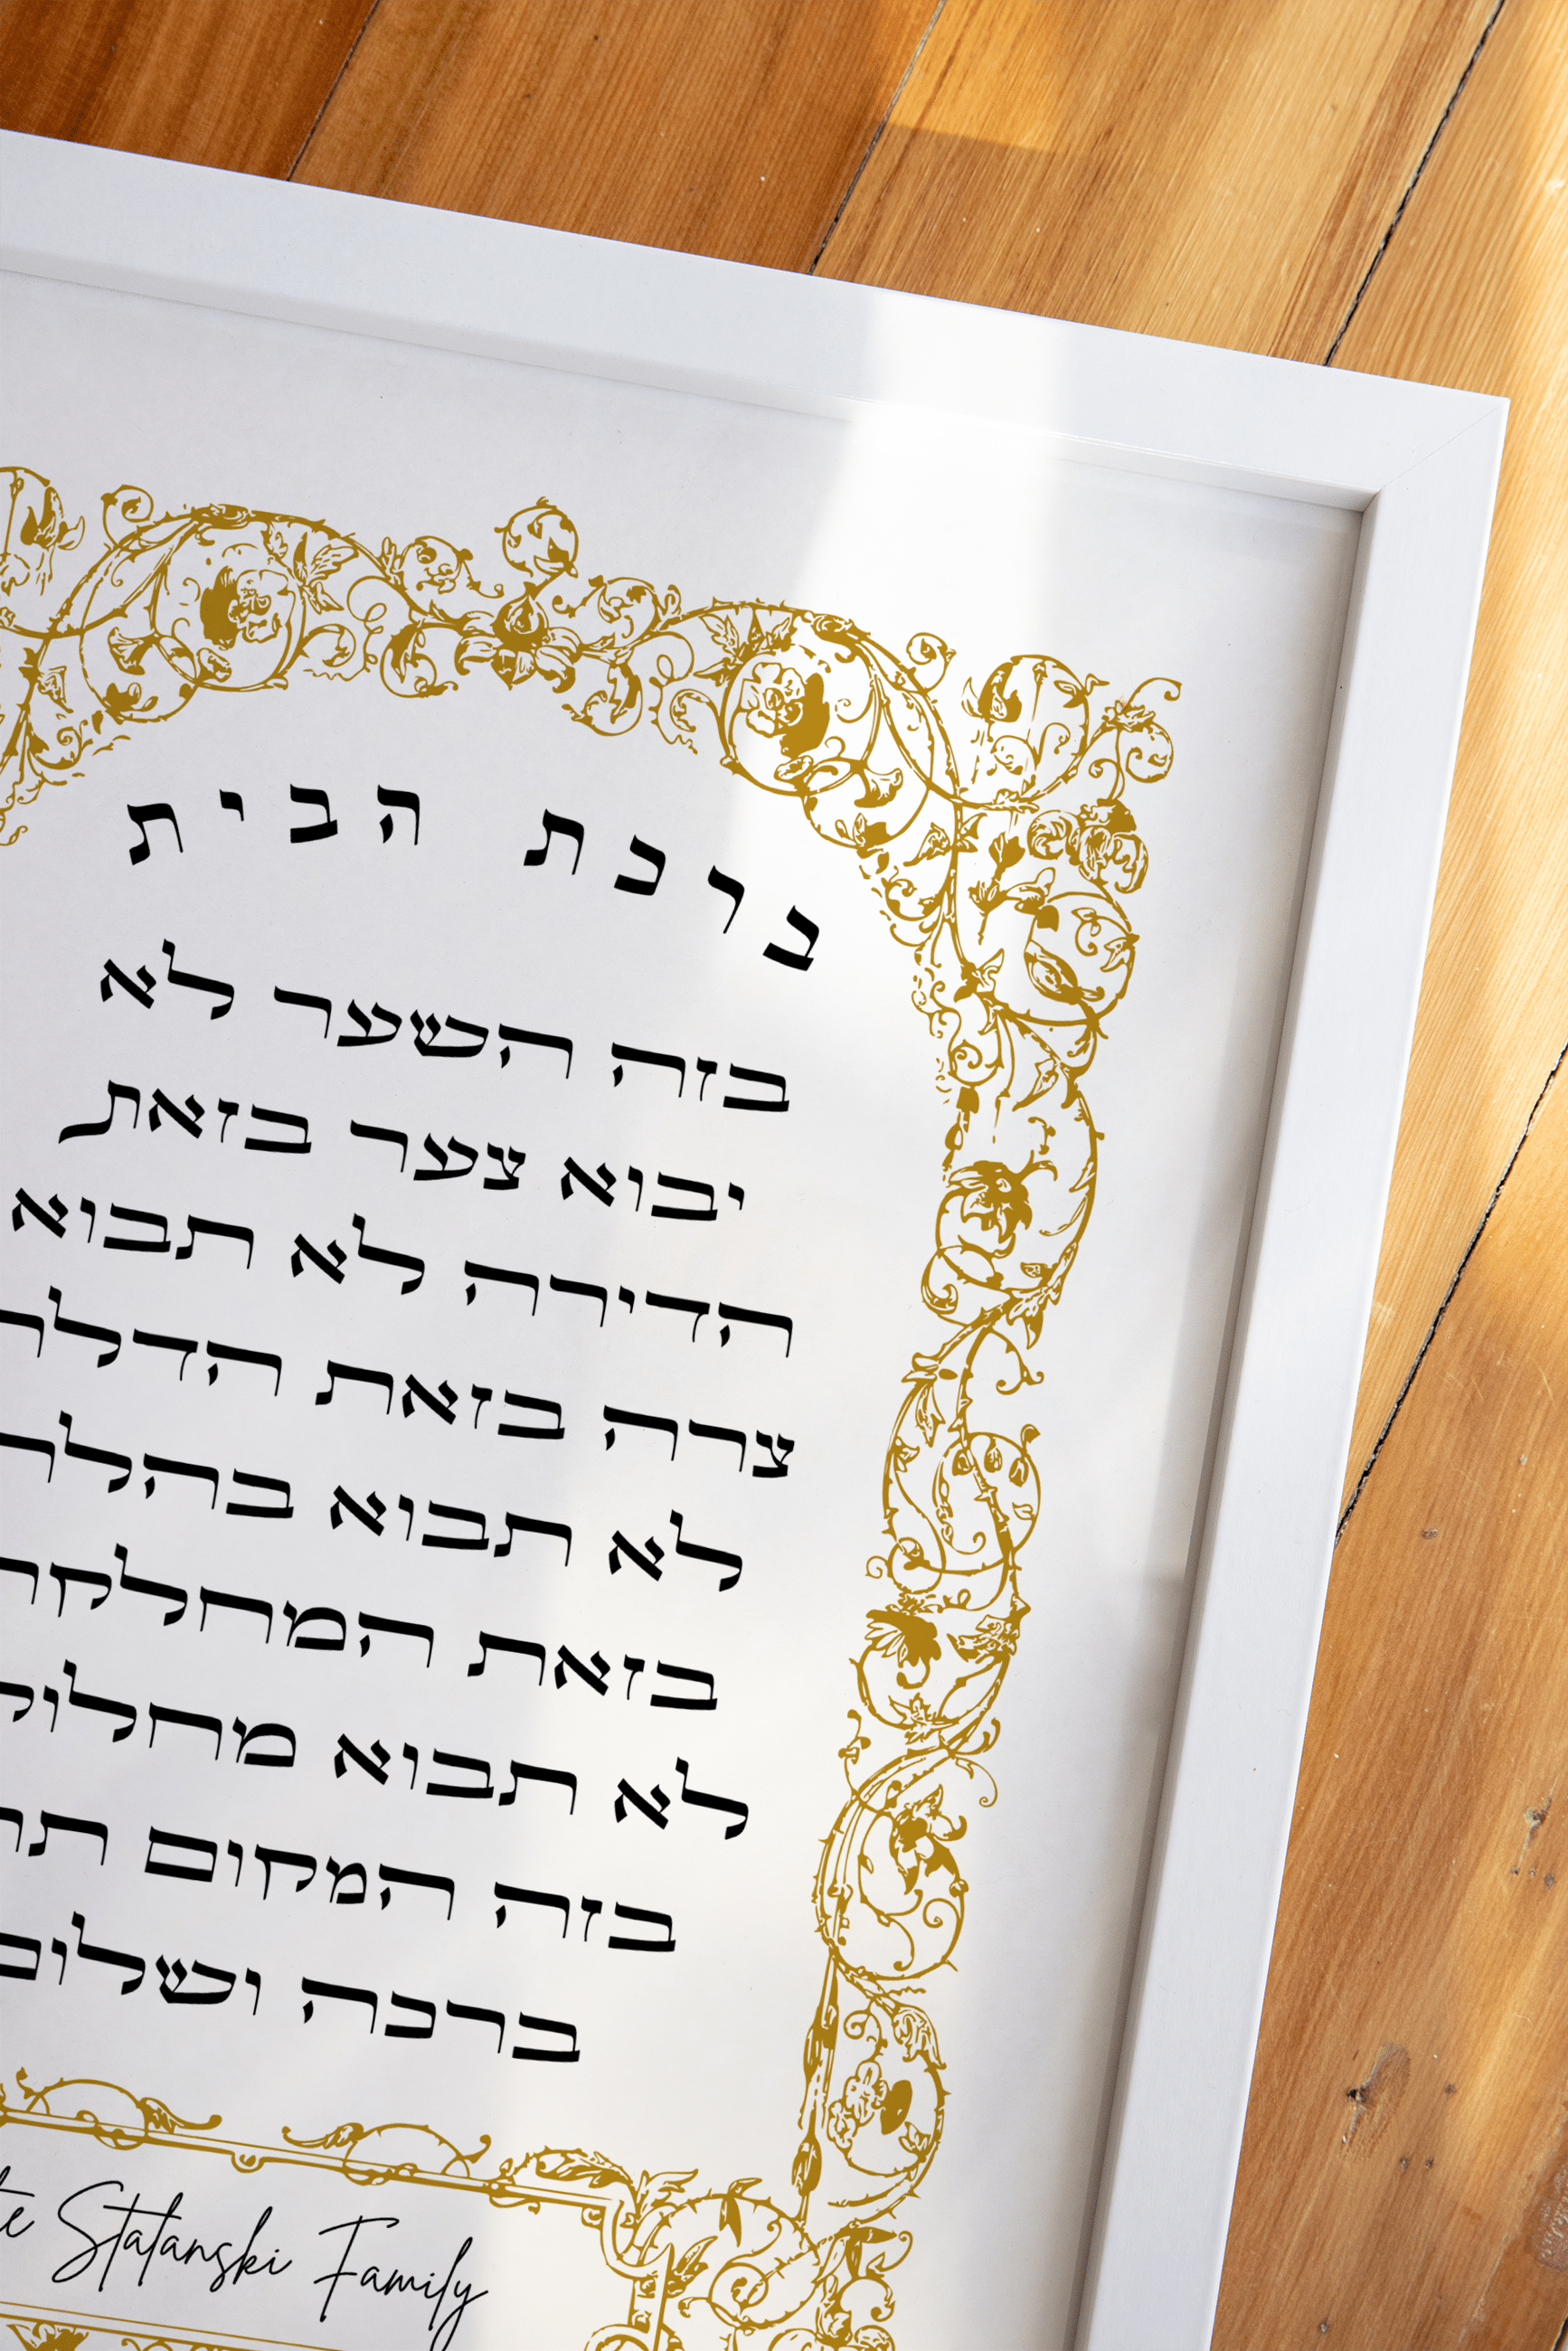 ברכת הבית
בזה השער לא
יבוא צער בזאת
הדירה לא תבוא
צרה בזאת הדלת
לא תבוא בהלה
בזאת המחלקה
לא תבוא
בזה המקום
ברכה ושלום
Stalanski Family